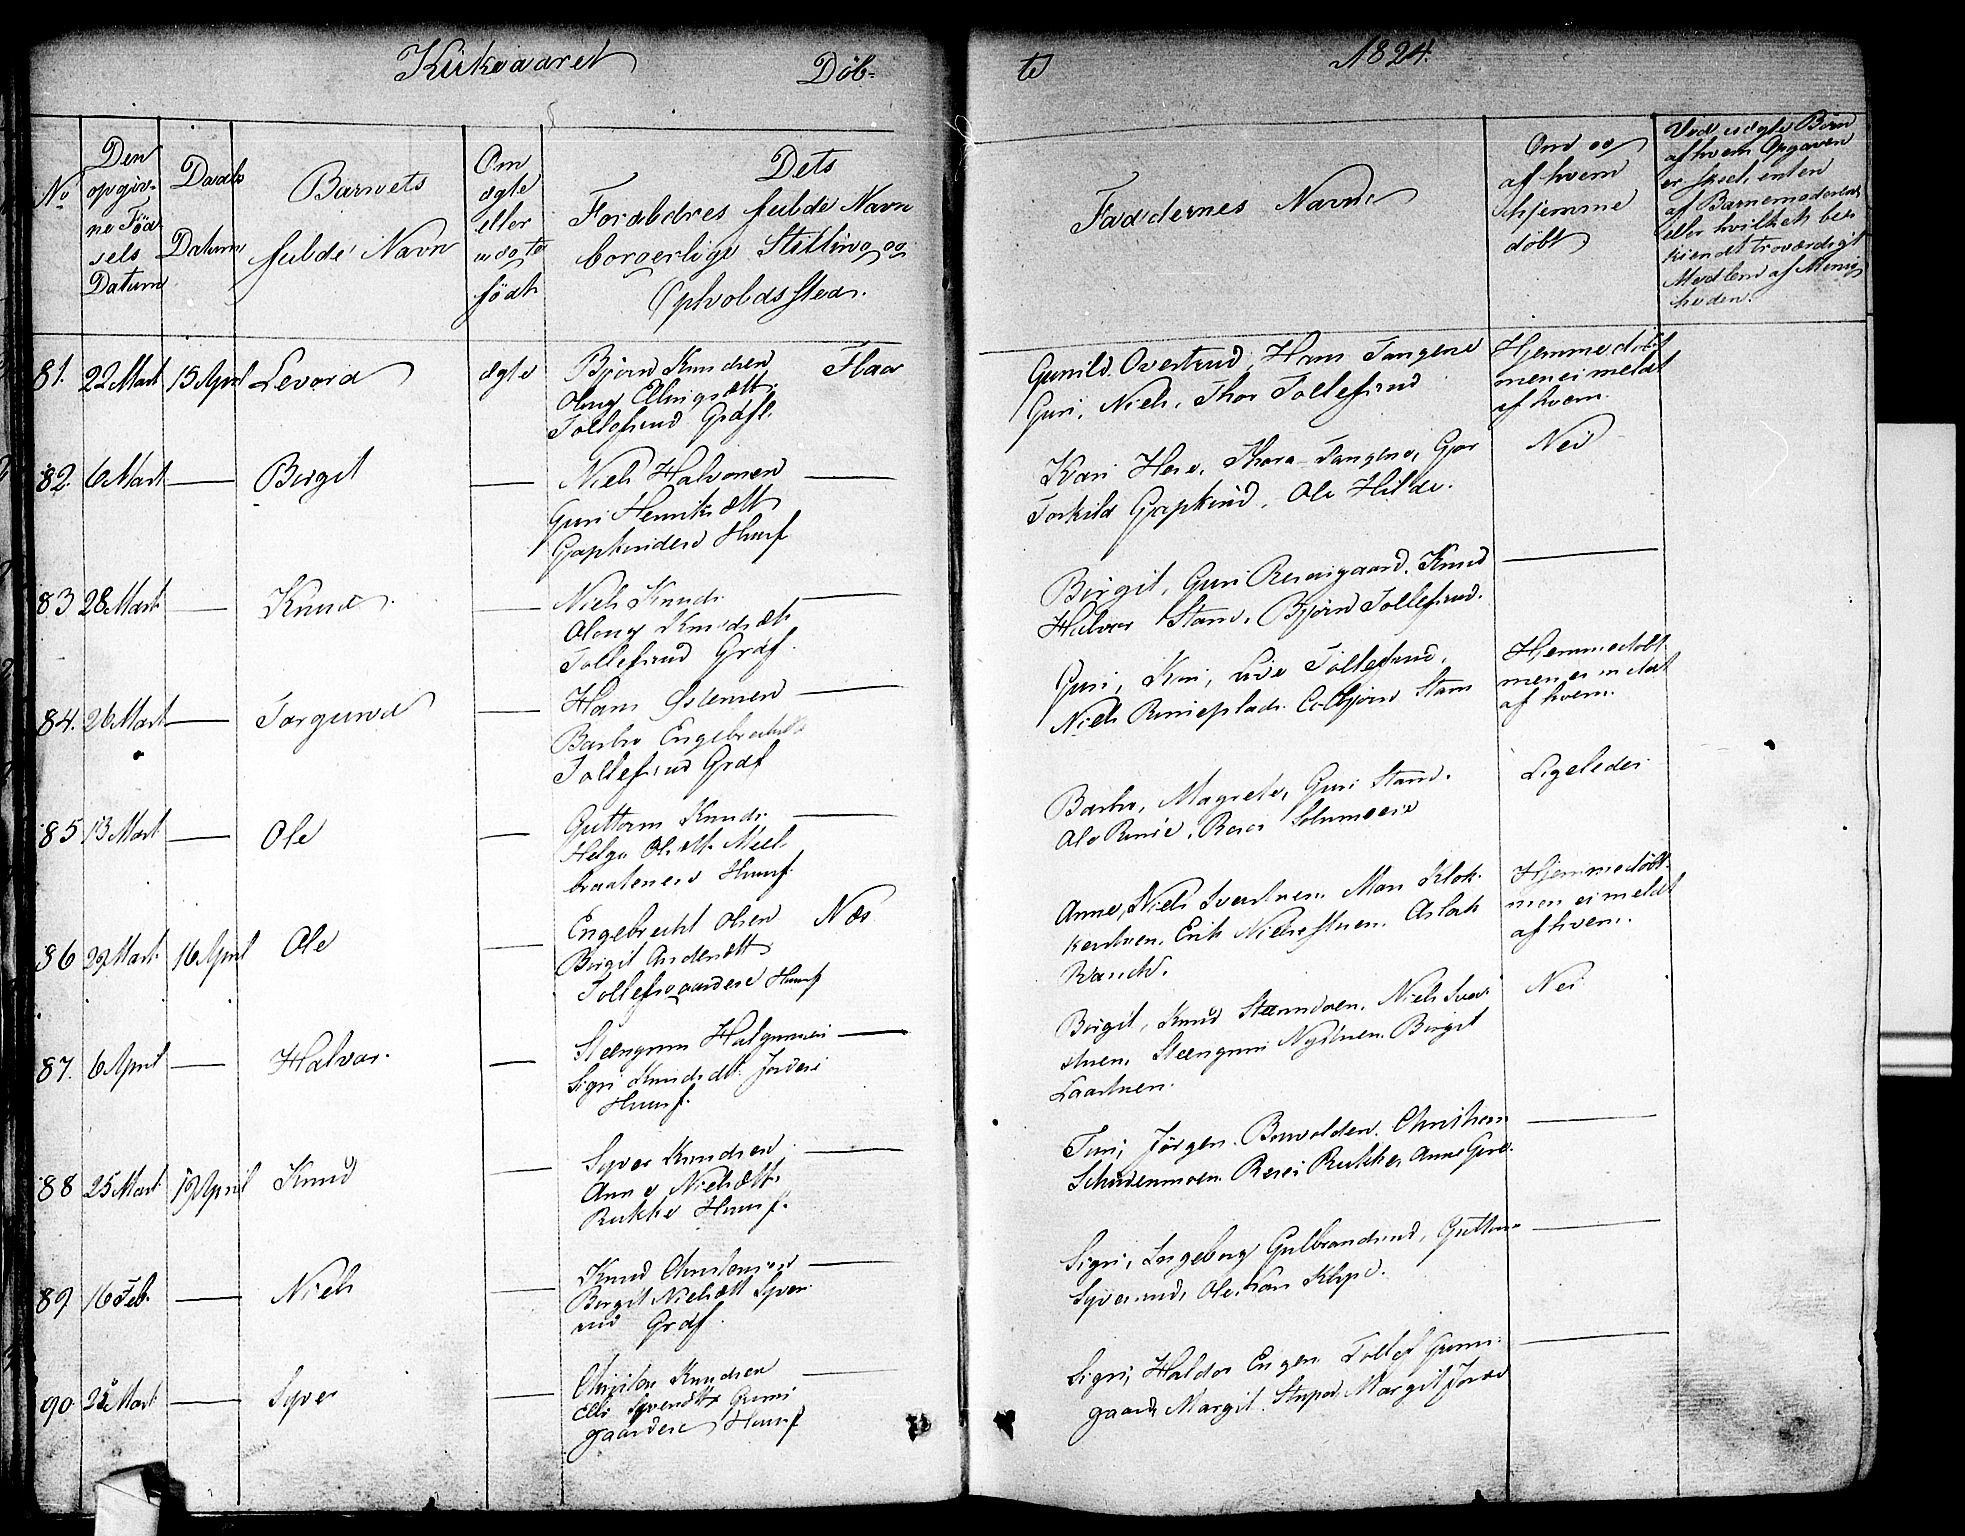 Kirkeaaret Døb-
te 1824.
No
Den
opgiv-
ne Fød
sels
Datum
Daabs
Datum
Barnets
fulde Navn
Om
ægte
eller
uægte
født
Dets
Forældres fulde Navn
borgerlige Stilling og
Opholdssted.
Faddernes Navne
Om og
af hvem
hjemme
døbt
Ved uægte Børn
af hvem Opgaven
er skeet, enten
af Barnemoderen
eller hvilket be-
kiendt troværdigt
Medlem af Menig
heden.
81. 22 Mart 15 April Levord ægte Bjørn Knudsen Flaa
Oloug Ellingsdtt.
Tollefsrud Grdf.
Gunild Overtrud, Hans Tangene
Guri, Niels, Thor Tollefsrud
Hjemmedøbt
men ei meldt
af hvem.
82. 6 Mart — Birgit — Niels Halvorsen —
Guri Henriksdtt
Gapkindere Huusf
Kari Hove, Thora Tangene, Gjør
Torkild Gapkind, Ole Hilde.
Nei
83 28 Mart — Knud — Niels Knuds. —
Oloug Knudsdtt
Tollefsrud Grdf.
Birgit, Guri Roesegaard, Knud
Halvor Stavn, Bjørn Tollefsrud.
—
84. 26 Mart — Torgund — Hans —
Barbro Engebrechtsdtt
Tollefsrud Grdf
Guri, Kari, Live Tollefsrud,
Niels Colbjørn Stavn
Hjemmedøbt
men ei meldt
af hvem.
85 13 Mart — Ole — Guttorm Knuds. —
Helge Olsdtt. Meel-
braatenere Huusf.
Barbro, Magrete, Guri Stavn.
Ole
Ligeledes
86 29 Mart 16 April Ole — Engebrecht Olsen Næs
Birgit Andersdtt
Tollefsgaardere Huusf
Anne, Niels Mari Klok-
kerstuen, Erik Nielsestuen, Aslak
Hjemmedøbt
men ei meldt
af hvem.
87. 6 April — Halvor. — Steengrim Halgrimsen —
Sigri Knudsdtt. Jordere
Huusf.
Birgit, Knud Niels
stuen, Steengrim Nystuen, Birgit
Laastuen.
Nei
88 25 Mart 19 April Knud — Syver Knudsen —
Anne Nielsdtt.
Rukke Huusf.
Turi, Jørgen Christian
Anne
—
89. 16 Feb. — Niels — Knud Christophersen —
Birgit Nielsdtt Syver-
rud Grdf.
Sigri, Ingeborg Gulbrandsrud, Guttorm
Syversrud, Ole, Lars Klype.
—
90 25 Mart — Syver — Christen Knudsen —
Elli Syversdtt
gaardere Huusf
Sigri, Haldor Engen, Tollef
gaard, Margit Margit Jorde
—